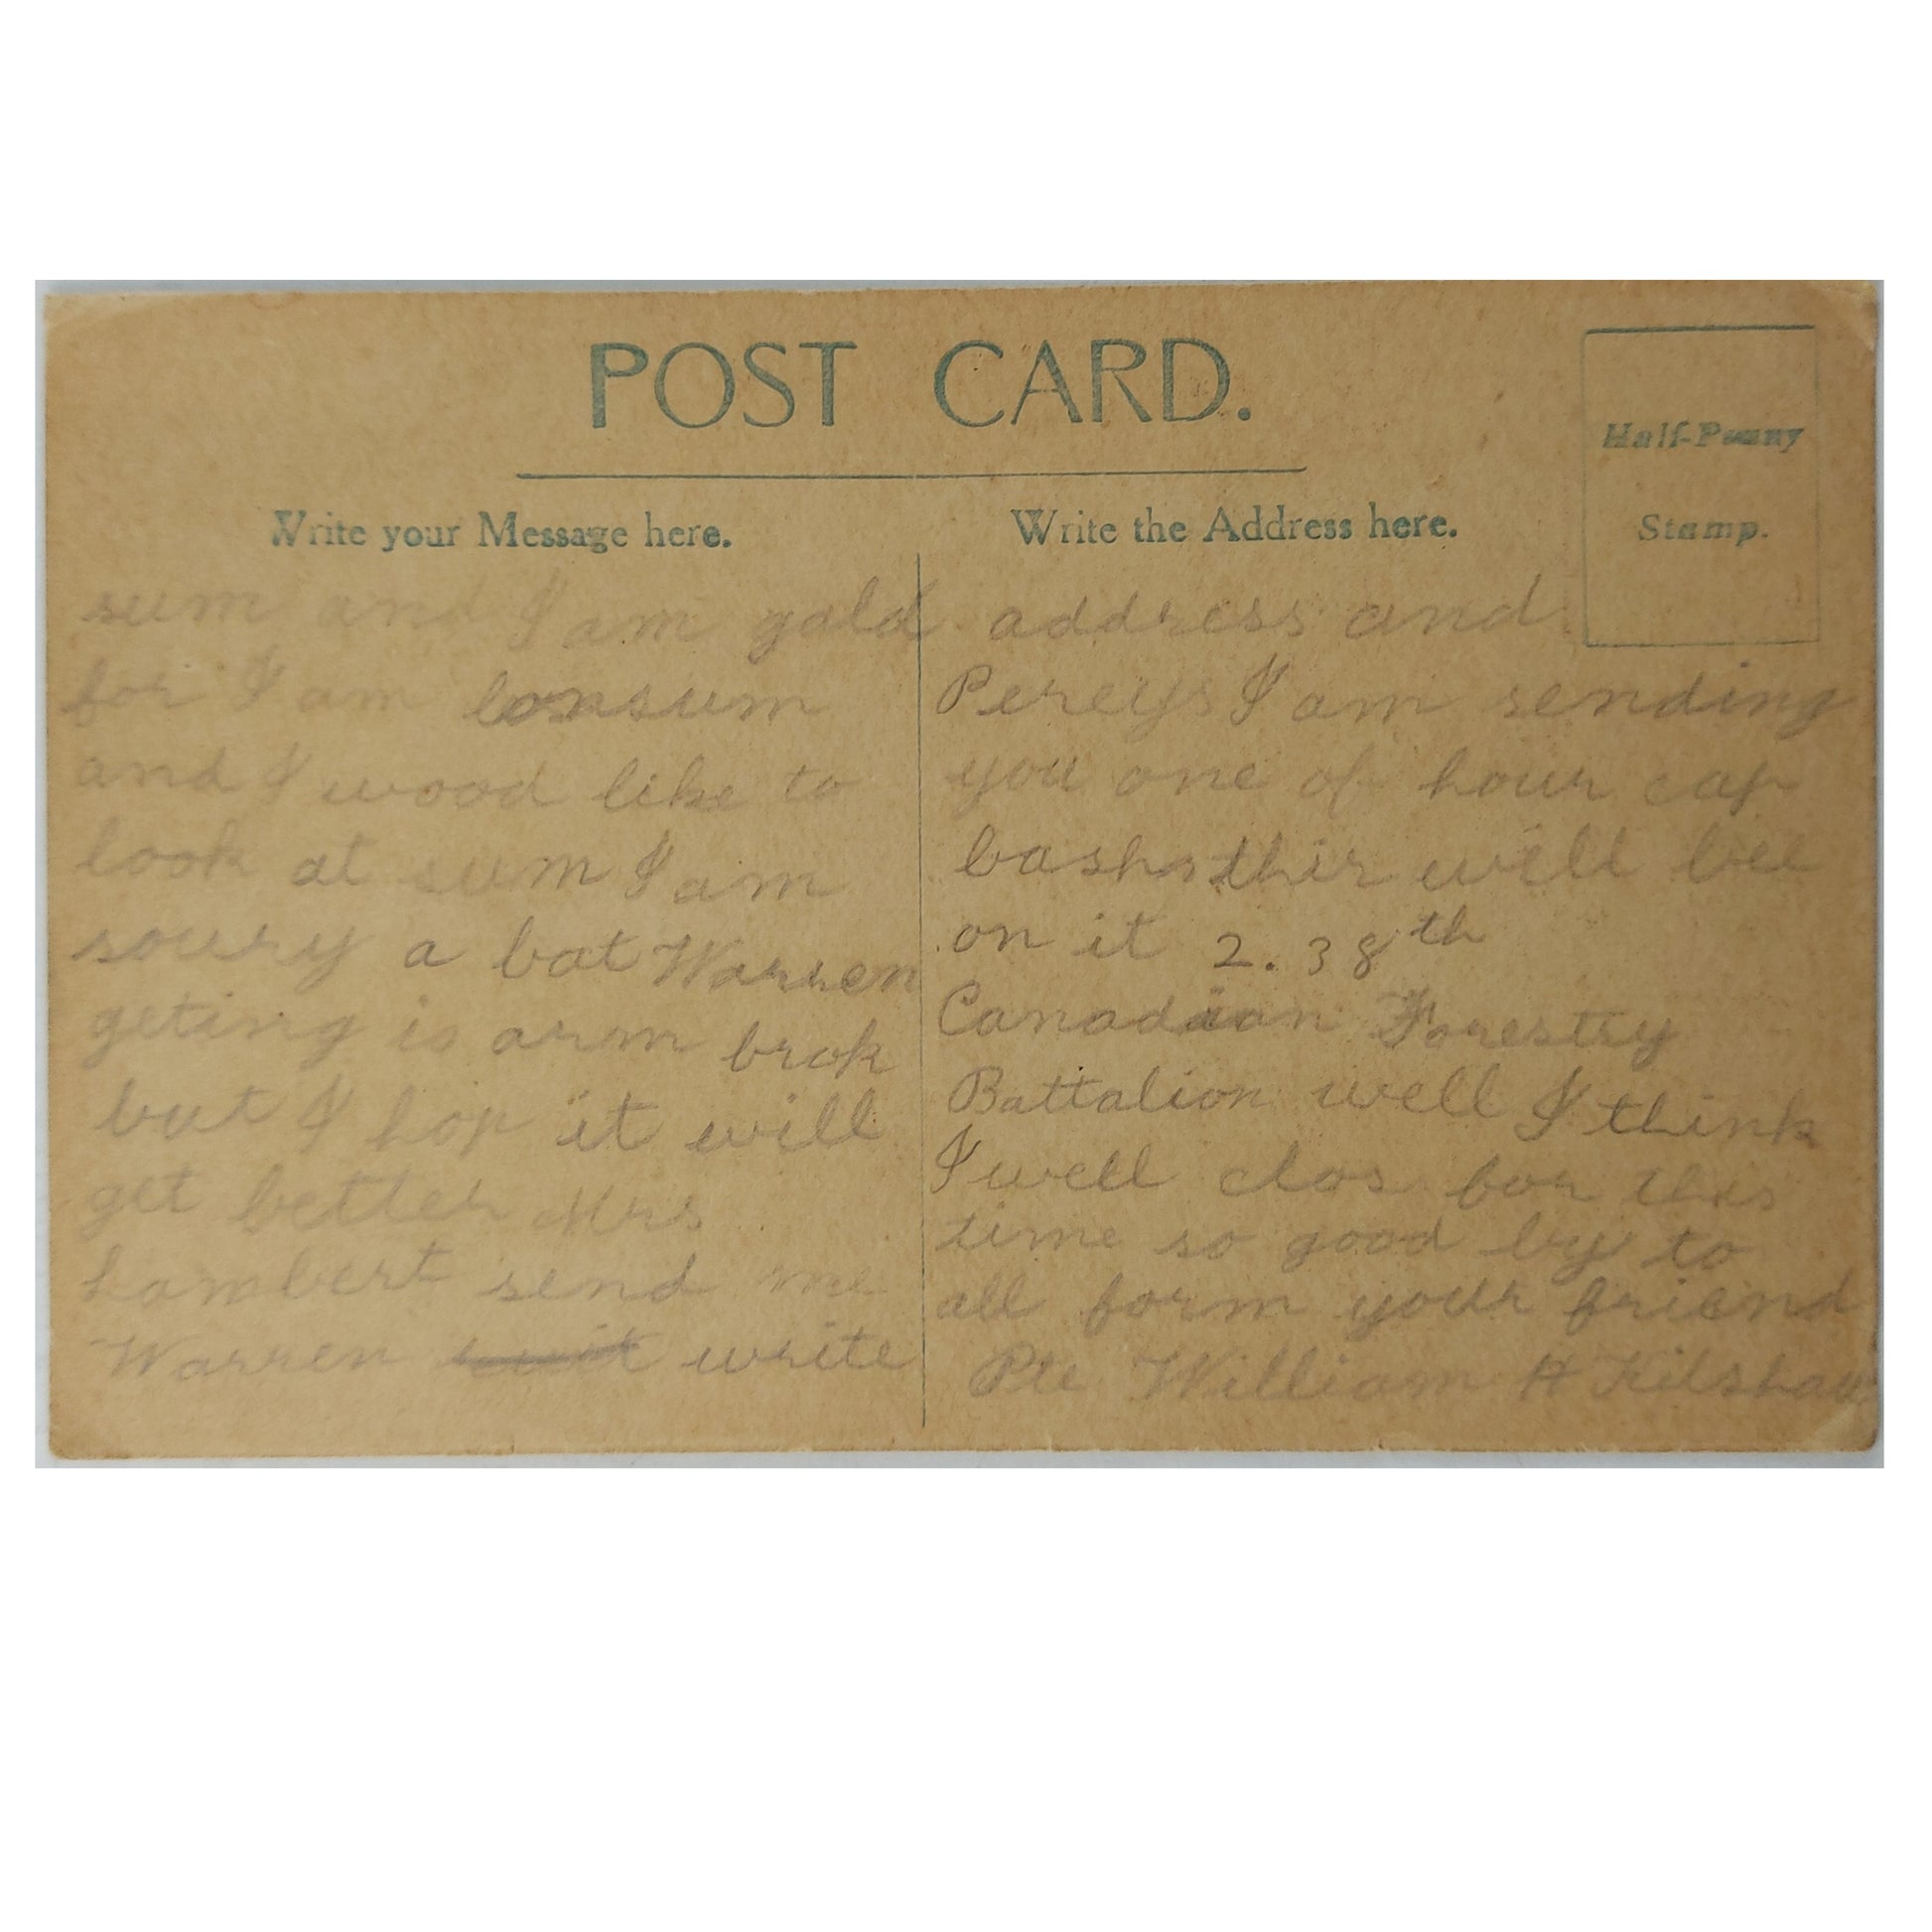 POST CARD.
Half-Penny
Stamp.
Write your Message here.
sum and I am gald
for I am lonsum
and I wood like to
look at sum I am
soury a bat Warren
geting is arm brok
but I hop it will
get better Mrs
Lambert send me
Warren write
Write the Address here.
address and
Percys I am sending
you one of hour cap
bashs thir will bee
on it 2.38th
Canadian Forestry
Battalion well I think
I well clos for this
time so good by to
all form your friend
Pte William A Kilshaw